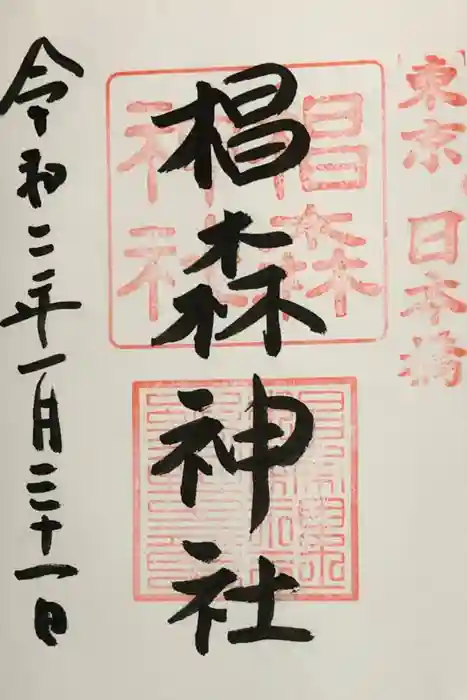 東京 日本橋
椙森神社
椙森
神社
令和二年一月三十一日